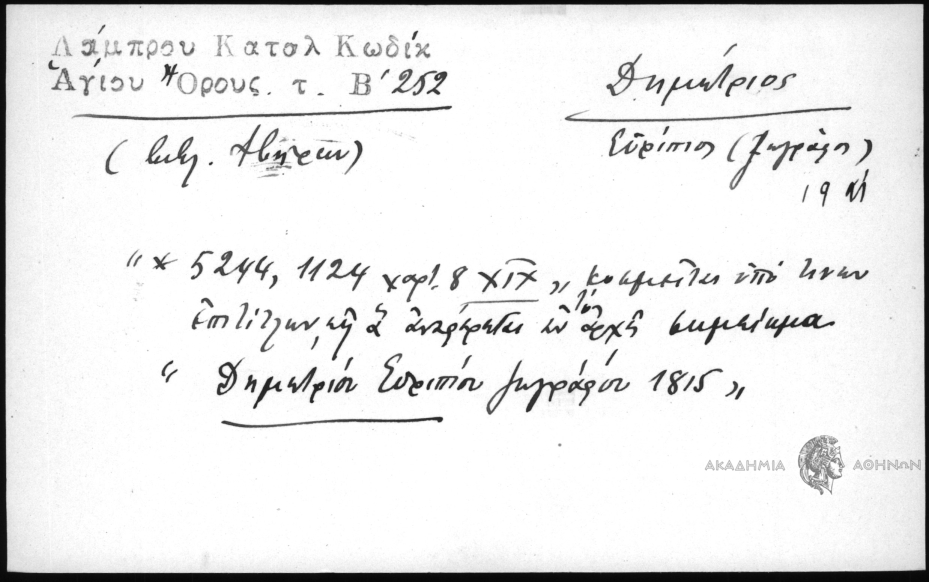 Λάμπρου Καταλ Κωδίκ
Ἁγίου Ὄρους. τ. Β' 252
Δημήτριος
Εὐρίπιος (ζωγράφος)
19
"* 5244, 1124 χαρτ. 8 XIX „ κοσμεῖται ὑπό τινων
ἐπιτίτλων, εἰς ἃ ἀναφέρεται ἐν τῇ ἀρχῇ σημείωμα
" Δημητρίου Εὐριπίου ζωγράφου 1815 „
ΑΚΑΔΗΜΙΑ ΑΘΗΝΩΝ